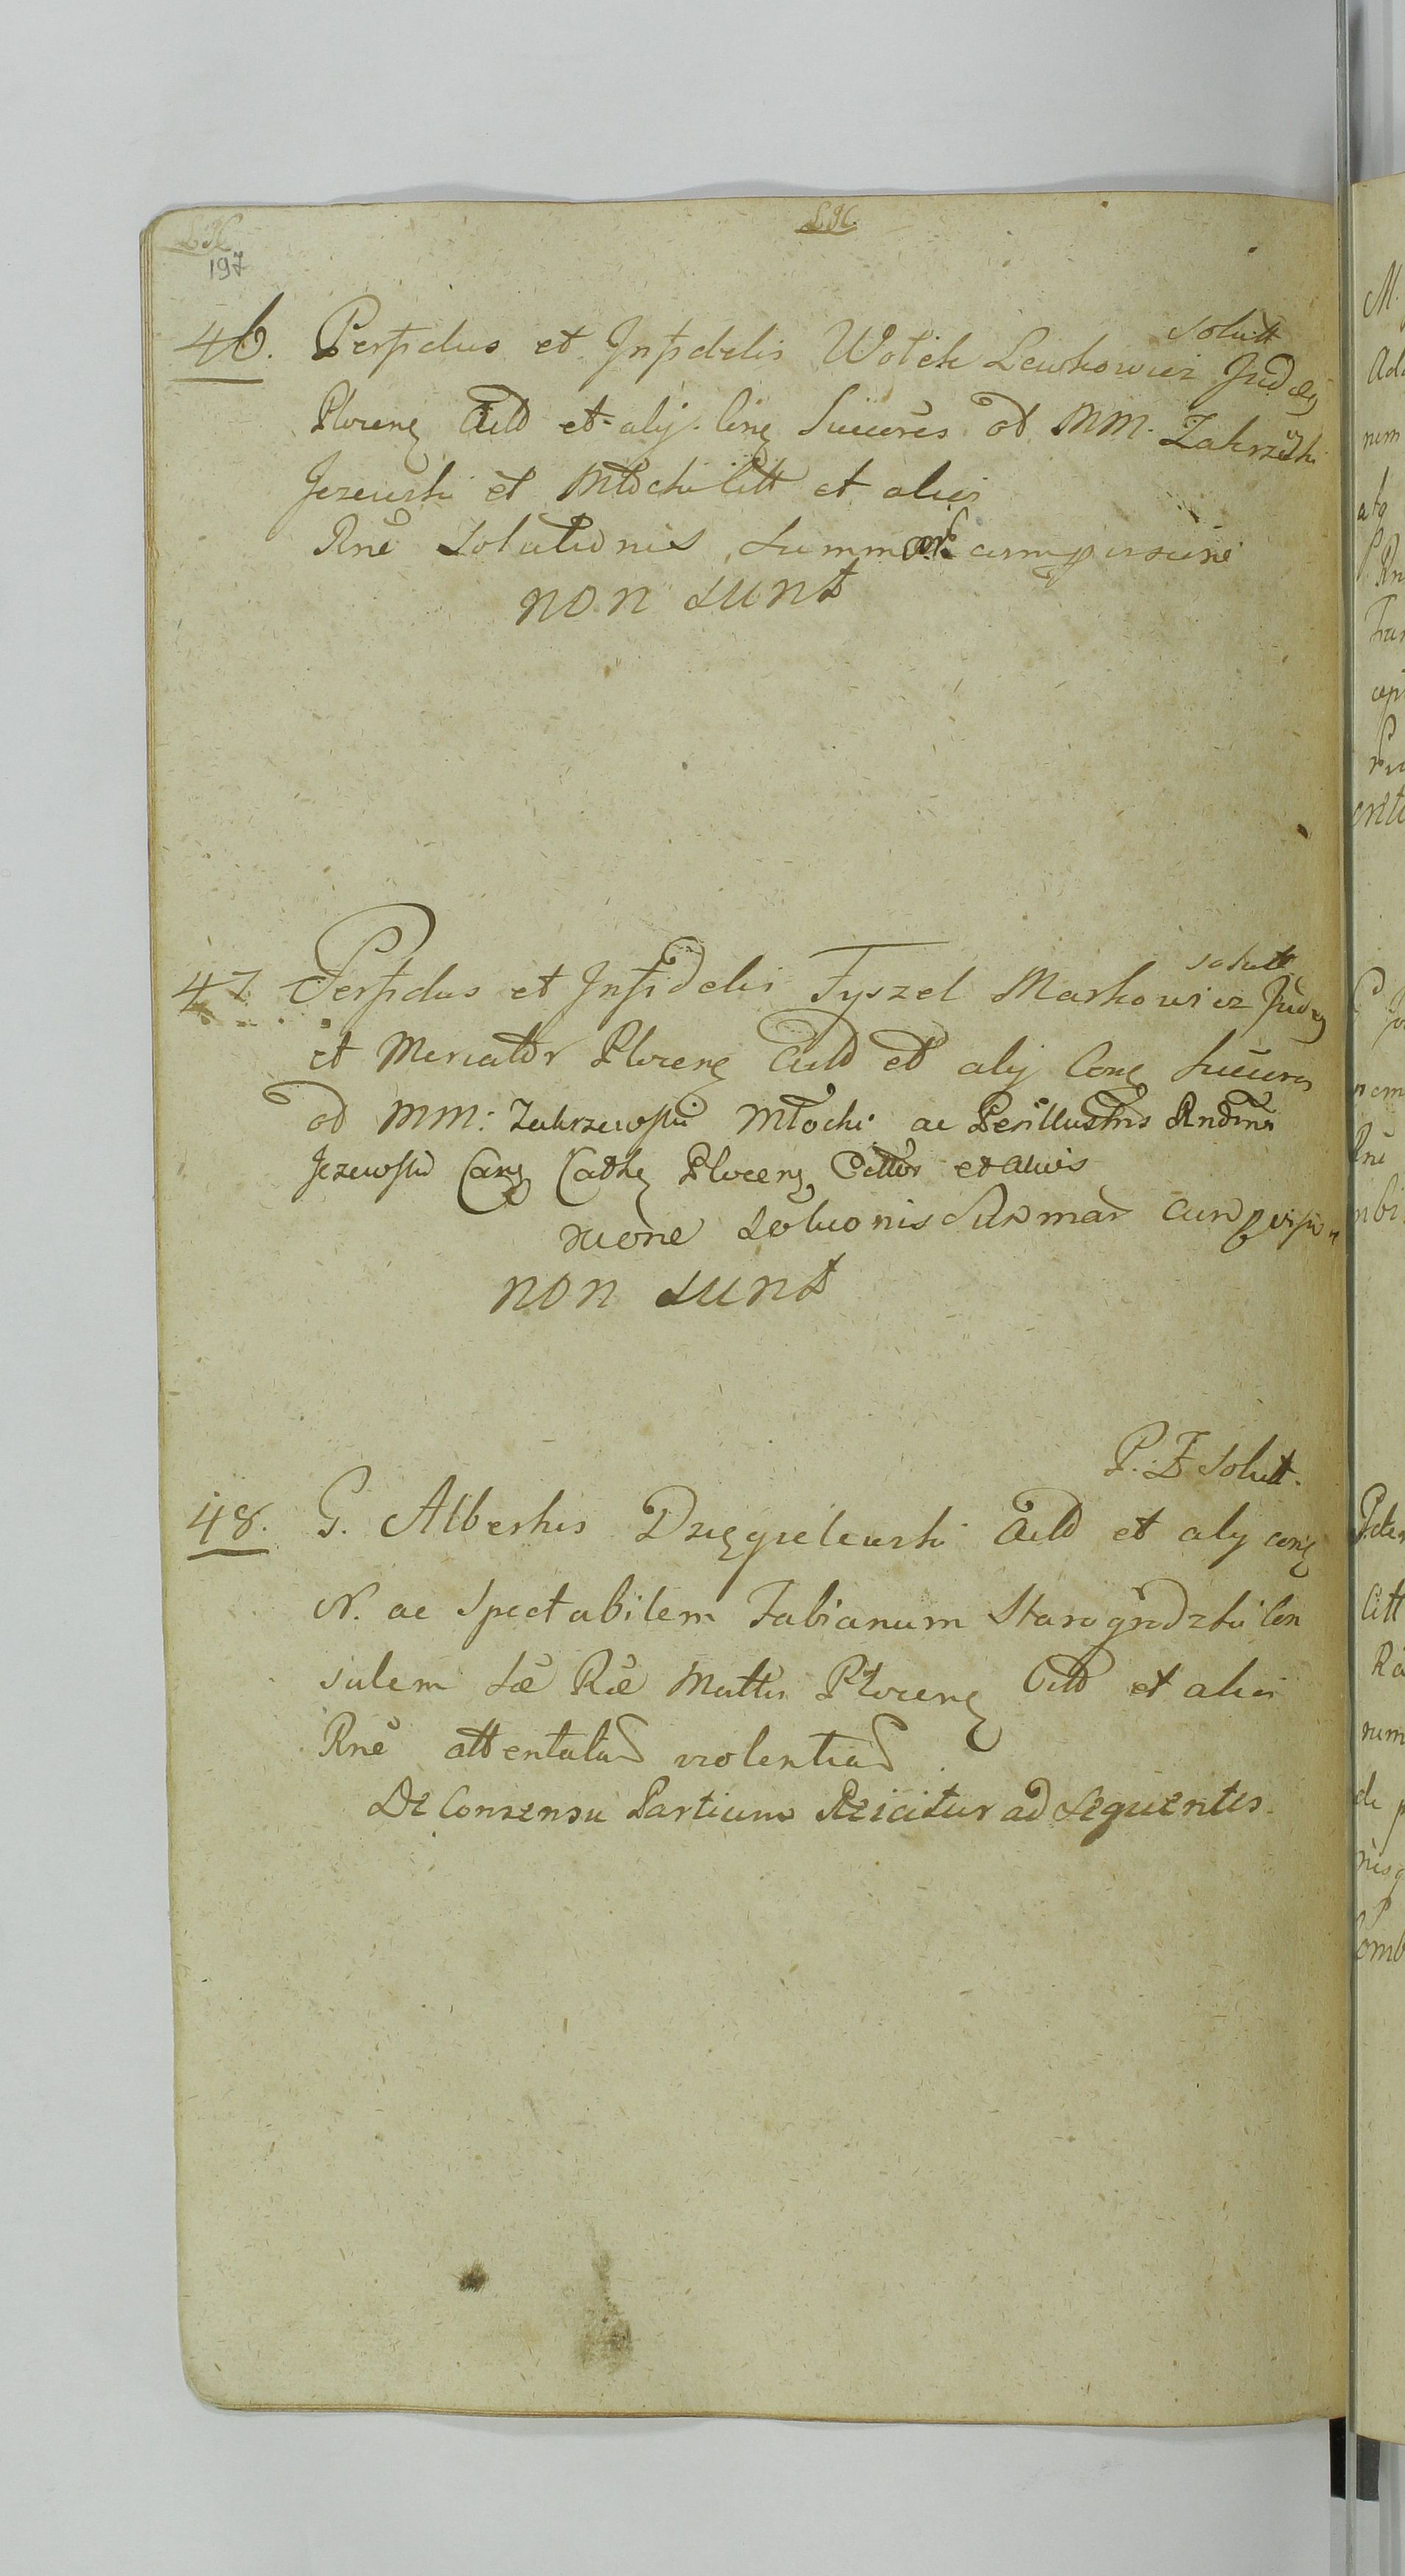 197
solutt
46. Perfidus et Infidelis Wolek Lewkowicz Jud
Plocens Actd et alij Cons Succres ad MM. Zakrzewski
Jezewski et Młocki Citt et alios
Rne Solutionis Summar cum provisine
non sunt
solutt
47. Perfidus et Infidelis Fyszel Markowicz Jud
et Mercator Plocens Actd et alij Cons Succres
ad MM: Zakrzewski Młocki ac Perillustris Rndmi
Jezewski Can Cath Plocens Cittos et alios
racione Solucionis Summar cum provisi
non sunt
P. Z solutt.
48. G. Albertus Dzięgielewski Actd et alij cons
N. ac Spectabilem Fabianum Starogrodzki Con
sulem Sæ Ræ Mattis Plocens Citd et alios
Rne attentatas violentias
De Consensu Partium Reicitur ad Sequentes.